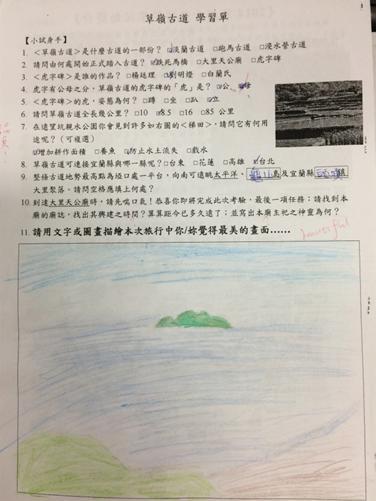 草嶺古道 學習單
【小試身手】
1. <草嶺古道>是什麼古道的一部份？ ☑淡蘭古道 □跑馬古道 □浸水營古道
2. 請問由何處開始正式踏入古道？ ☑跌死馬橋 □大里天公廟 □虎字碑
3. <虎字碑>是誰的作品？ □楊廷理 ☑劉明燈 □白蘭氏
4. 虎字有公母之分，草嶺古道的虎字碑的「虎」是？ □公 ☑母
5. <虎字碑>的虎，姿態為何？ □蹲 □坐 □趴 ☑立
6. 請問草嶺古道全長幾公里？ □10 ☑8.5 □16 □85 公里
7. 在遠望坑親水公園你會見到許多如右圖的<梯田>，請問它有何用
途呢？（可複選）
☑增加耕作面積 □養魚 ☑防止水土流失 □戲水
8. 草嶺古道可連接宜蘭縣與哪一縣呢？ □台東 □花蓮 □高雄 ☑台北
9. 整條古道地勢最高點為埡口處一平台，向南可遠眺太平洋、龜山島及宜蘭縣頭城鎮
大里聚落。請問空格應填上何處？
10. 到達大里天公廟時，請先喘口氣！恭喜你即將完成此次考驗，最後一項任務：請找到本
廟的廟誌，找出其興建之時間？算算距今已多久遠了；並寫出本廟主祀之神靈為何？
11. 請用文字或圖畫描繪本次旅行中你/妳覺得最美的畫面……